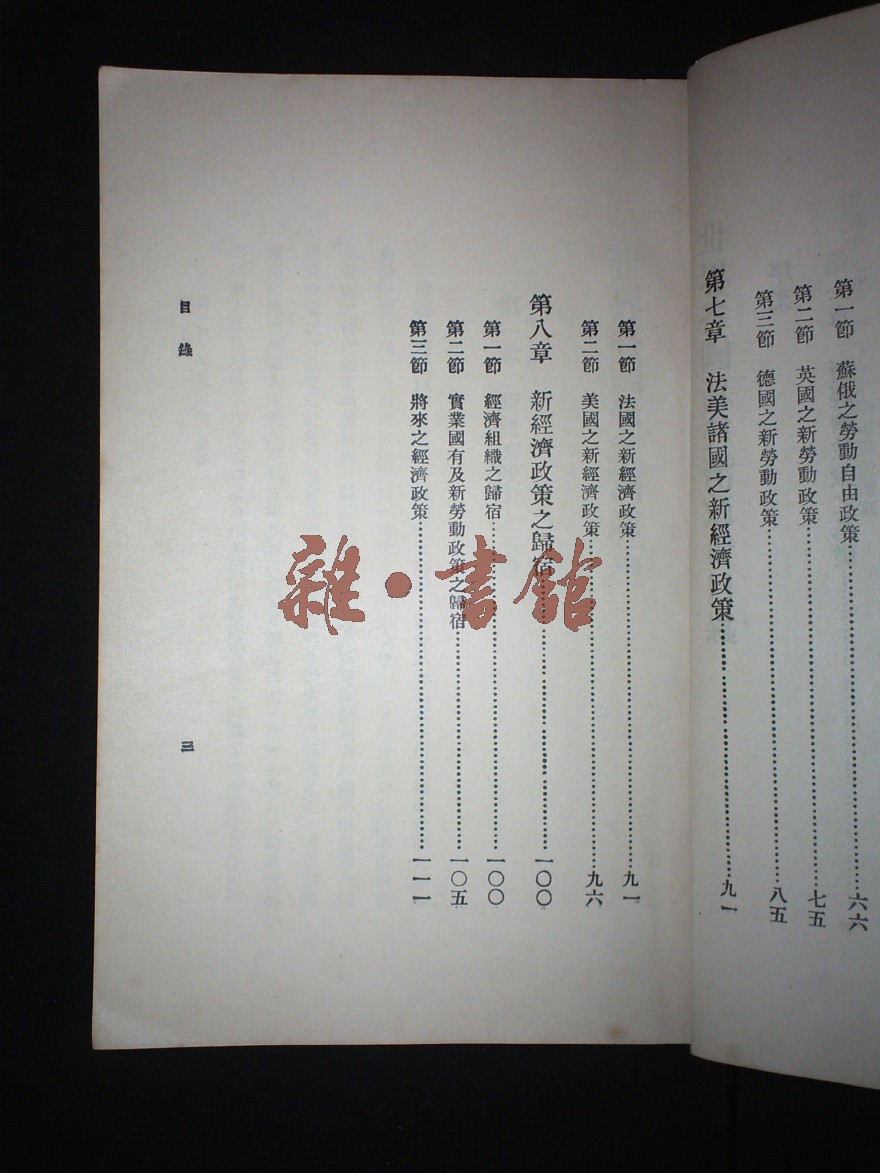 第一節　蘇俄之勞動自由政策……六六
第二節　英國之新勞動政策……七五
第三節　德國之新勞動政策……八五
第七章　法美諸國之新經濟政策……九一
第一節　法國之新經濟政策……九一
第二節　美國之新經濟政策……九六
第八章　新經濟政策之歸宿……一〇〇
第一節　經濟組織之歸宿……一〇〇
第二節　實業國有及新勞動政策之歸宿……一〇五
第三節　將來之經濟政策……一一一
目錄
三
雜·書館